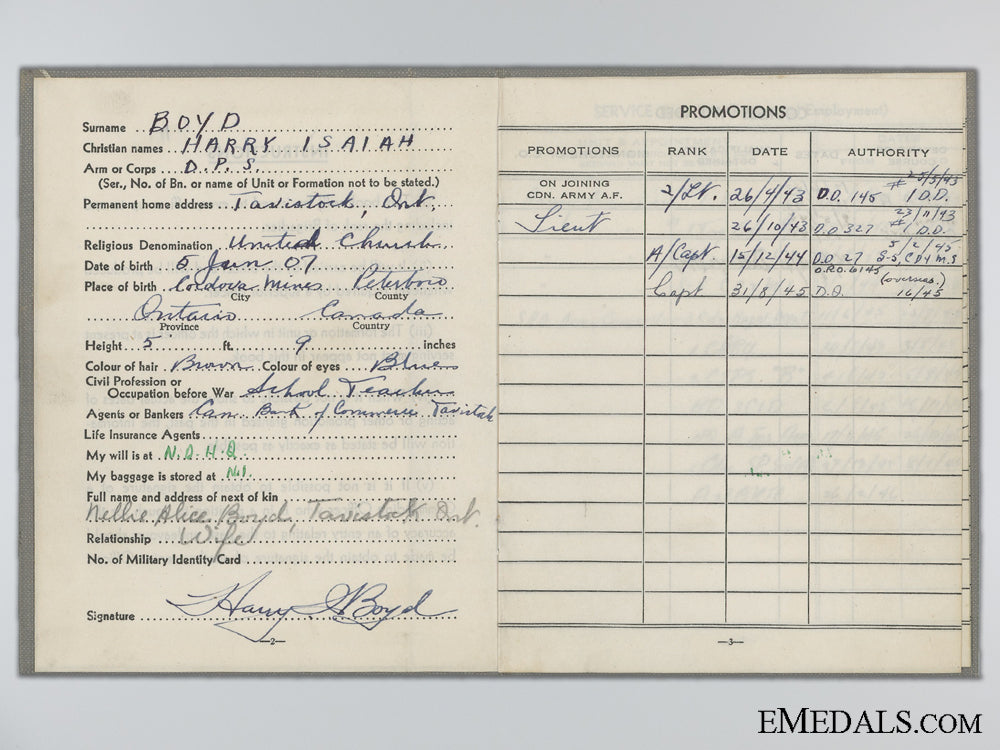 Surname BOYD
Christian names HARRY ISAIAH
Arm or Corps D.P.S.
(Ser., No. of Bn. or name of Unit or Formation not to be stated.)
Permanent home address Tavistock, Ont.
Religious Denomination United Church
Date of birth 5 Jun 07
Place of birth Cordova Mines Peterboro
City County
Ontario Canada
Province Country
Height 5 ft. 9 inches
Colour of hair Brown Colour of eyes Blue
Civil Profession or
Occupation before War School Teacher
Agents or Bankers Can. Bank of Commerce Tavistock
Life Insurance Agents
My will is at N.D.H.Q.
My baggage is stored at
Full name and address of next of kin
Nellie Alice Boyd, Tavistock Ont.
Relationship Wife
No. of Military Identity Card
Signature Harry I Boyd
—2—
PROMOTIONS
PROMOTIONS RANK DATE AUTHORITY
ON JOINING
CDN. ARMY A.F. 2/Lt. 26/4/43 D.O. 145 # 1 D.D. 25/5/43
Lieut 26/10/43 D.O 327 # 1 D.D. 23/11/43
A/Capt. 15/12/44 D.O 27 5/2/45
O.R.O. 6145 (overseas)
Capt 31/8/45 D.O. 16/45
—3—
EMEDALS.COM